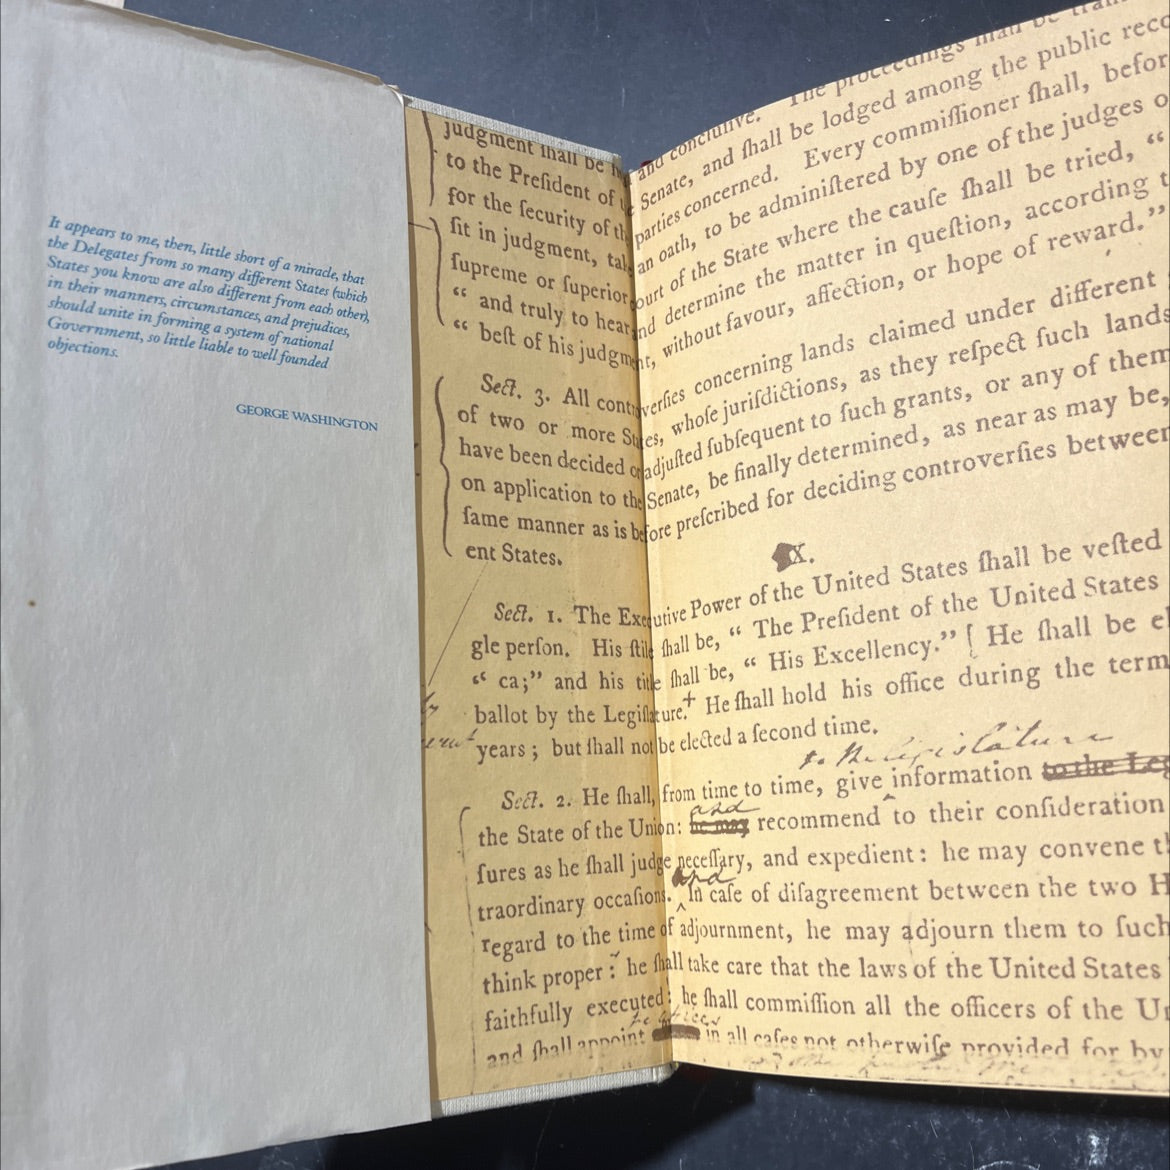 It appears to me, then, little short of a miracle, that
the Delegates from so many different States (which
States you know are also different from each other),
in their manners, circumstances, and prejudices,
should unite in forming a system of national
Government, so little liable to well founded
objections.
GEORGE WASHINGTON
and conclusive. The proceedings shall be
judgment shall be Senate, and ſhall be lodged among the public
to the Preſident of parties concerned. Every commiſſioner ſhall,
for the ſecurity of an oath, to be adminiſtered by one of the judges
ſit in judgment, court of the State where the cauſe ſhall be tried, “
ſupreme or ſuperior and determine the matter in queſtion, according
“ and truly to hear without favour, affection, or hope of reward.”
“ beſt of his judgment,
Sect. 3. All controverſies concerning lands claimed under different
of two or more States, whoſe juriſdictions, as they reſpect ſuch lands
have been decided or adjuſted ſubſequent to ſuch grants, or any of them
on application to the Senate, be finally determined, as near as may be,
ſame manner as is before preſcribed for deciding controverſies between
ent States.
X.
Sect. 1. The Executive Power of the United States ſhall be veſted
gle perſon. His ſtile ſhall be, “ The Preſident of the United States
“ ca;” and his title ſhall be, “ His Excellency.” [ He ſhall be
ballot by the Legiſlature.+ He ſhall hold his office during the term
years ; but ſhall not be elected a ſecond time.
to the Legislature
Sect. 2. He ſhall, from time to time, give information to the Leg
and
the State of the Union: he may recommend to their conſideration
fures as he ſhall judge neceſſary, and expedient : he may convene
and
traordinary occaſions. In caſe of diſagreement between the two
regard to the time of adjournment, he may adjourn them to ſuch
think proper : he ſhall take care that the laws of the United States
faithfully executed : he ſhall commiſſion all the officers of the
and ſhall appoint in all caſes not otherwiſe provided for by